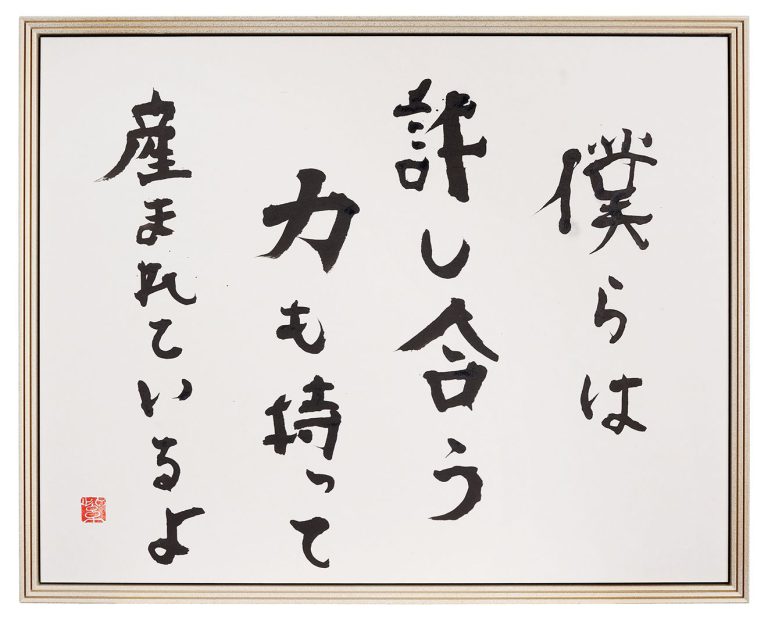 僕らは
許し合う
力も持って
産まれているよ